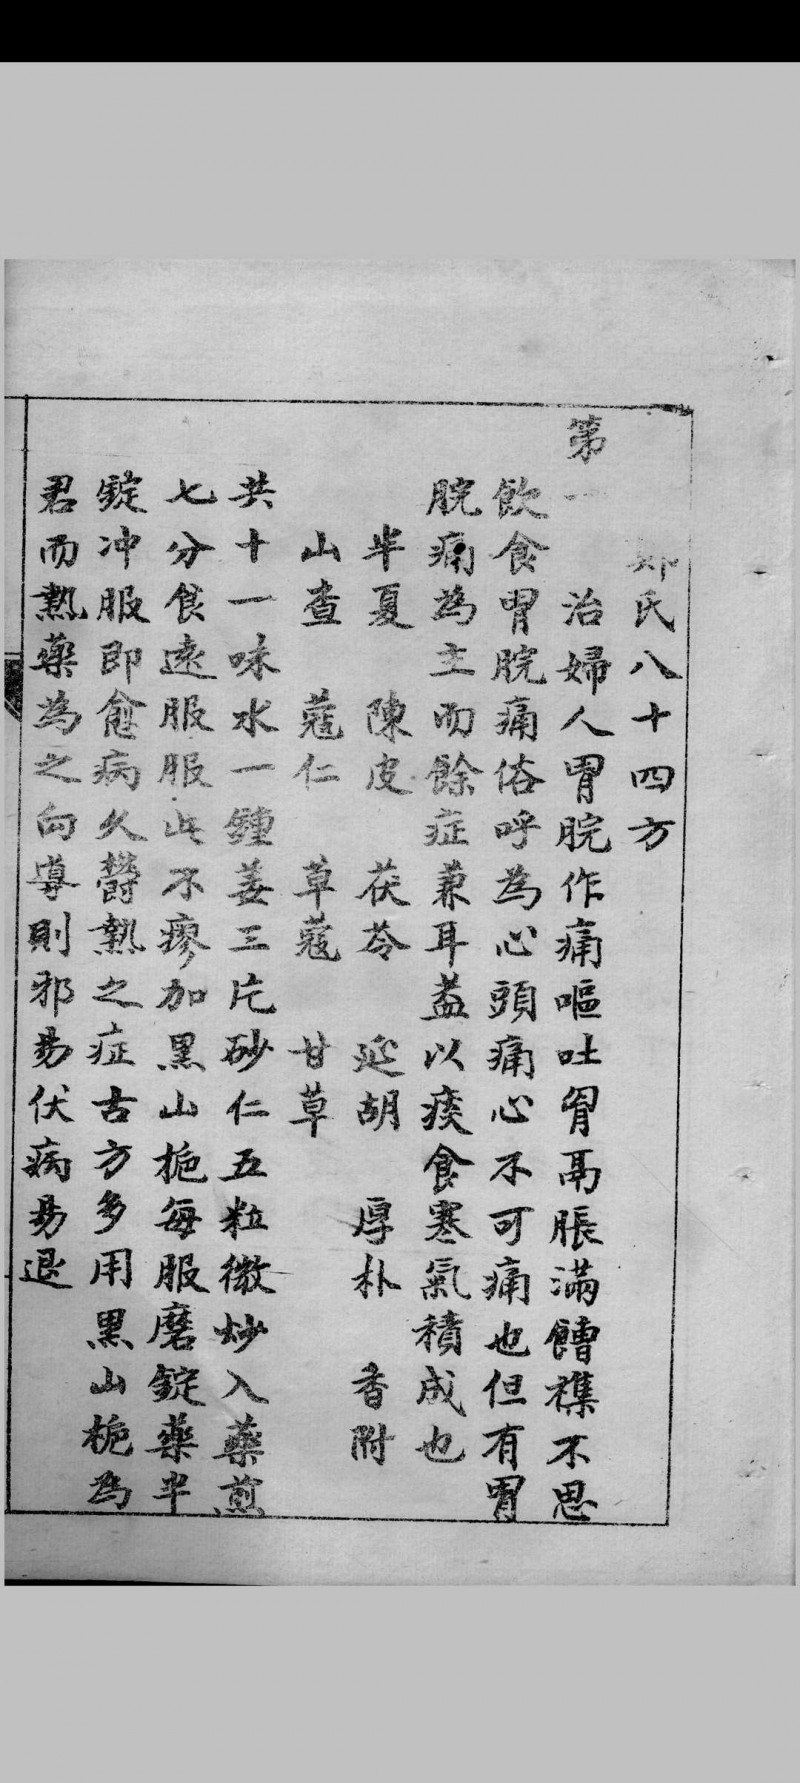 鄭氏八十四方
第一
治婦人胃脘作痛嘔吐胷鬲脹滿饍襍不思
飲食胃脘痛俗呼為心頭痛心不可痛也但有胃
脘痛為主而餘症兼耳蓋以痰食寒氣積成也
半夏 陳皮 茯苓 延胡 厚朴 香附
山查 蔻仁 草蔻 甘草
共十一味水一鍾姜三片砂仁五粒微炒入藥煎
七分食遠服服此不瘳加黑山梔每服磨錠藥半
錠冲服即愈病久欝熱之症古方多用黑山梔為
君而熱藥為之向導則邪易伏病易退